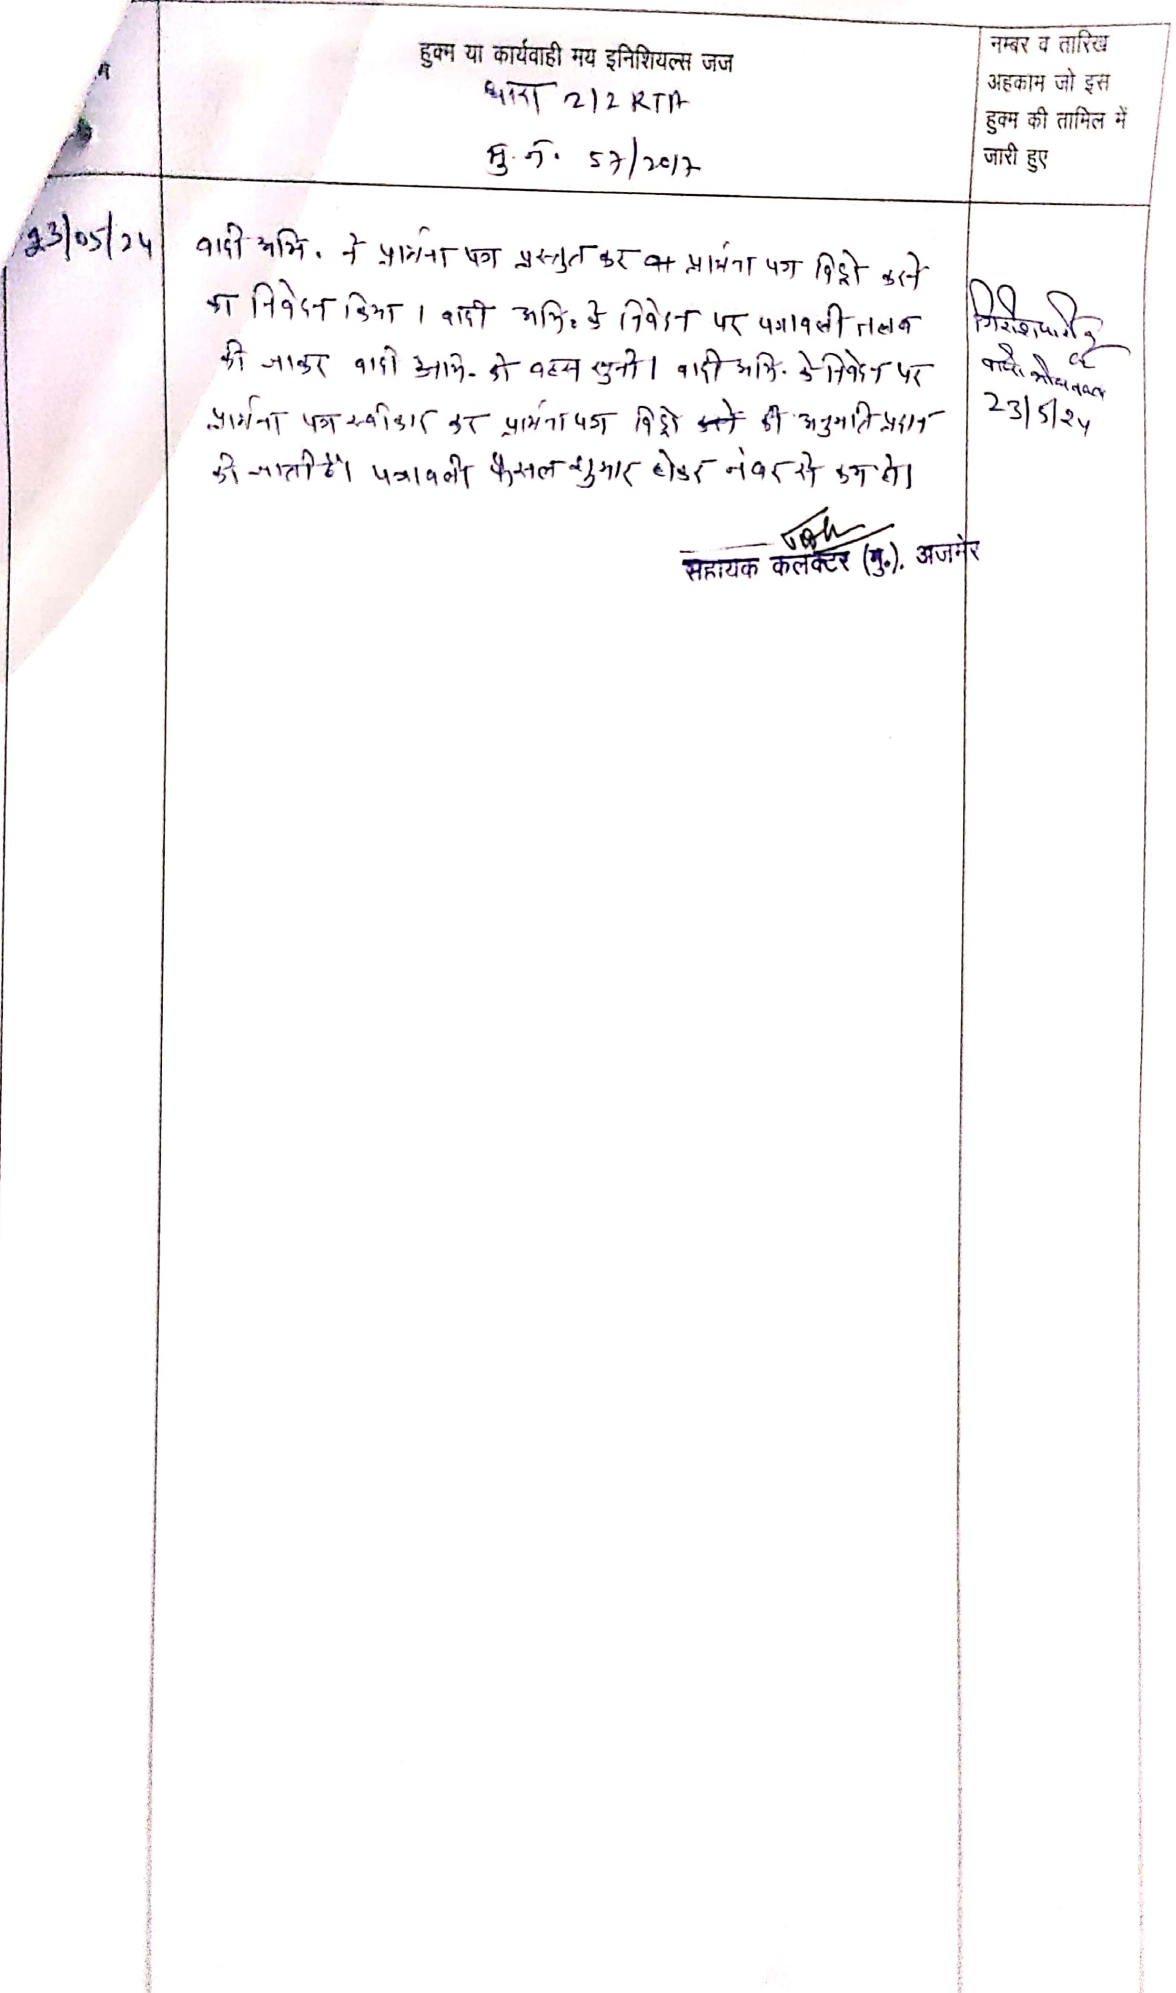 हुक्म या कार्यवाही मय इनिशियल्स जज
धारा 212 RTA
मु. नं. 57/2017
नम्बर व तारिख
अहकाम जो इस
हुक्म की तामिल में
जारी हुए
23/05/24
वादी अभि. ने प्रार्थना पत्र प्रस्तुत कर प्रार्थना पत्र विड्रो करने
का निवेदन किया । वादी अभि. के निवेदन पर पत्रावली तलब
की जाकर वादी अभि. की बहस सुनी। वादी अभि. के निवेदन पर
प्रार्थना पत्र स्वीकार कर प्रार्थना पत्र विड्रो करने की अनुमति प्रदान
की जाती है। पत्रावली फैसल शुमार होकर नंबर से कम हो।
सहायक कलक्टर (मु.), अजमेर
23/5/24